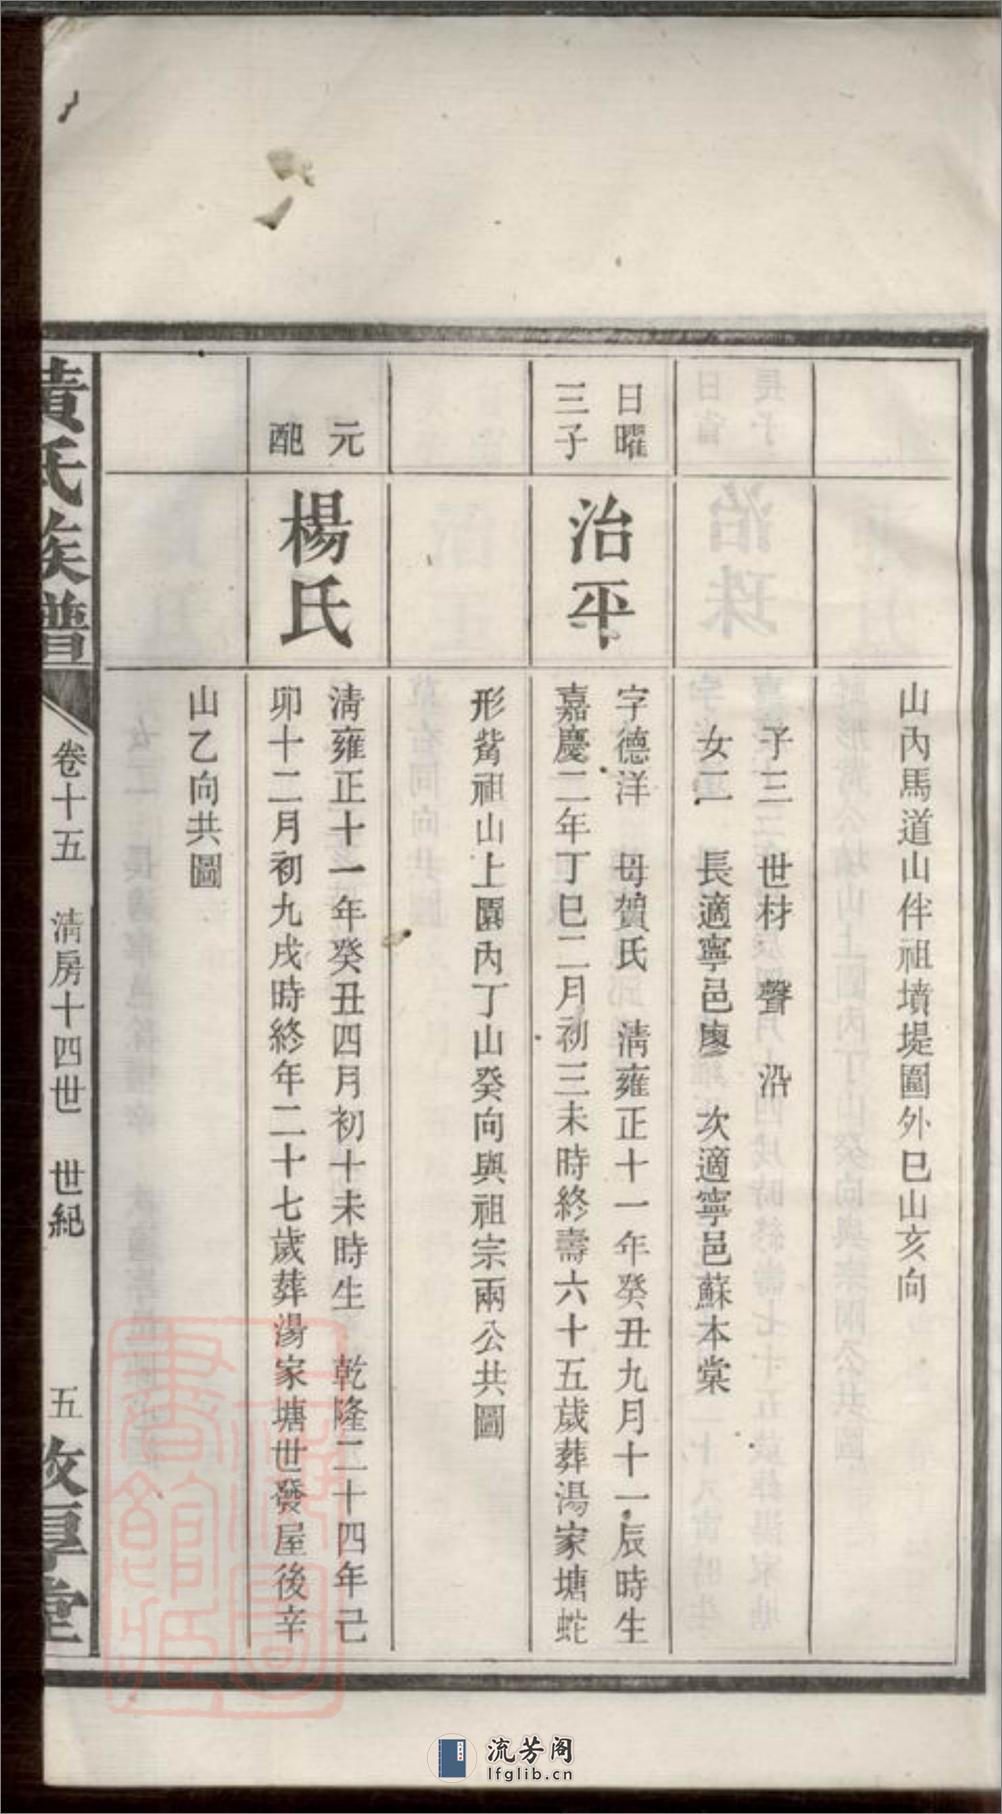 山內馬道山伴祖墳堤圍外巳山亥向
子三 世材 聲 沿
女二 長適寧邑廖 次適寧邑蘇本棠
日曜
三子
治平
字德洋 母賀氏 淸雍正十一年癸丑九月十一辰時生
嘉慶二年丁巳二月初三未時終壽六十五歲葬湯家塘蛇
形觜祖山上園內丁山癸向與祖宗兩公共圖
元
配
楊氏
淸雍正十一年癸丑四月初十未時生 乾隆二十四年己
卯十二月初九戌時終年二十七歲葬湯家塘世發屋後辛
山乙向共圖
黃氏族譜
卷十五 淸房十四世 世紀
五
敦厚堂
流芳阁
lfglib.cn